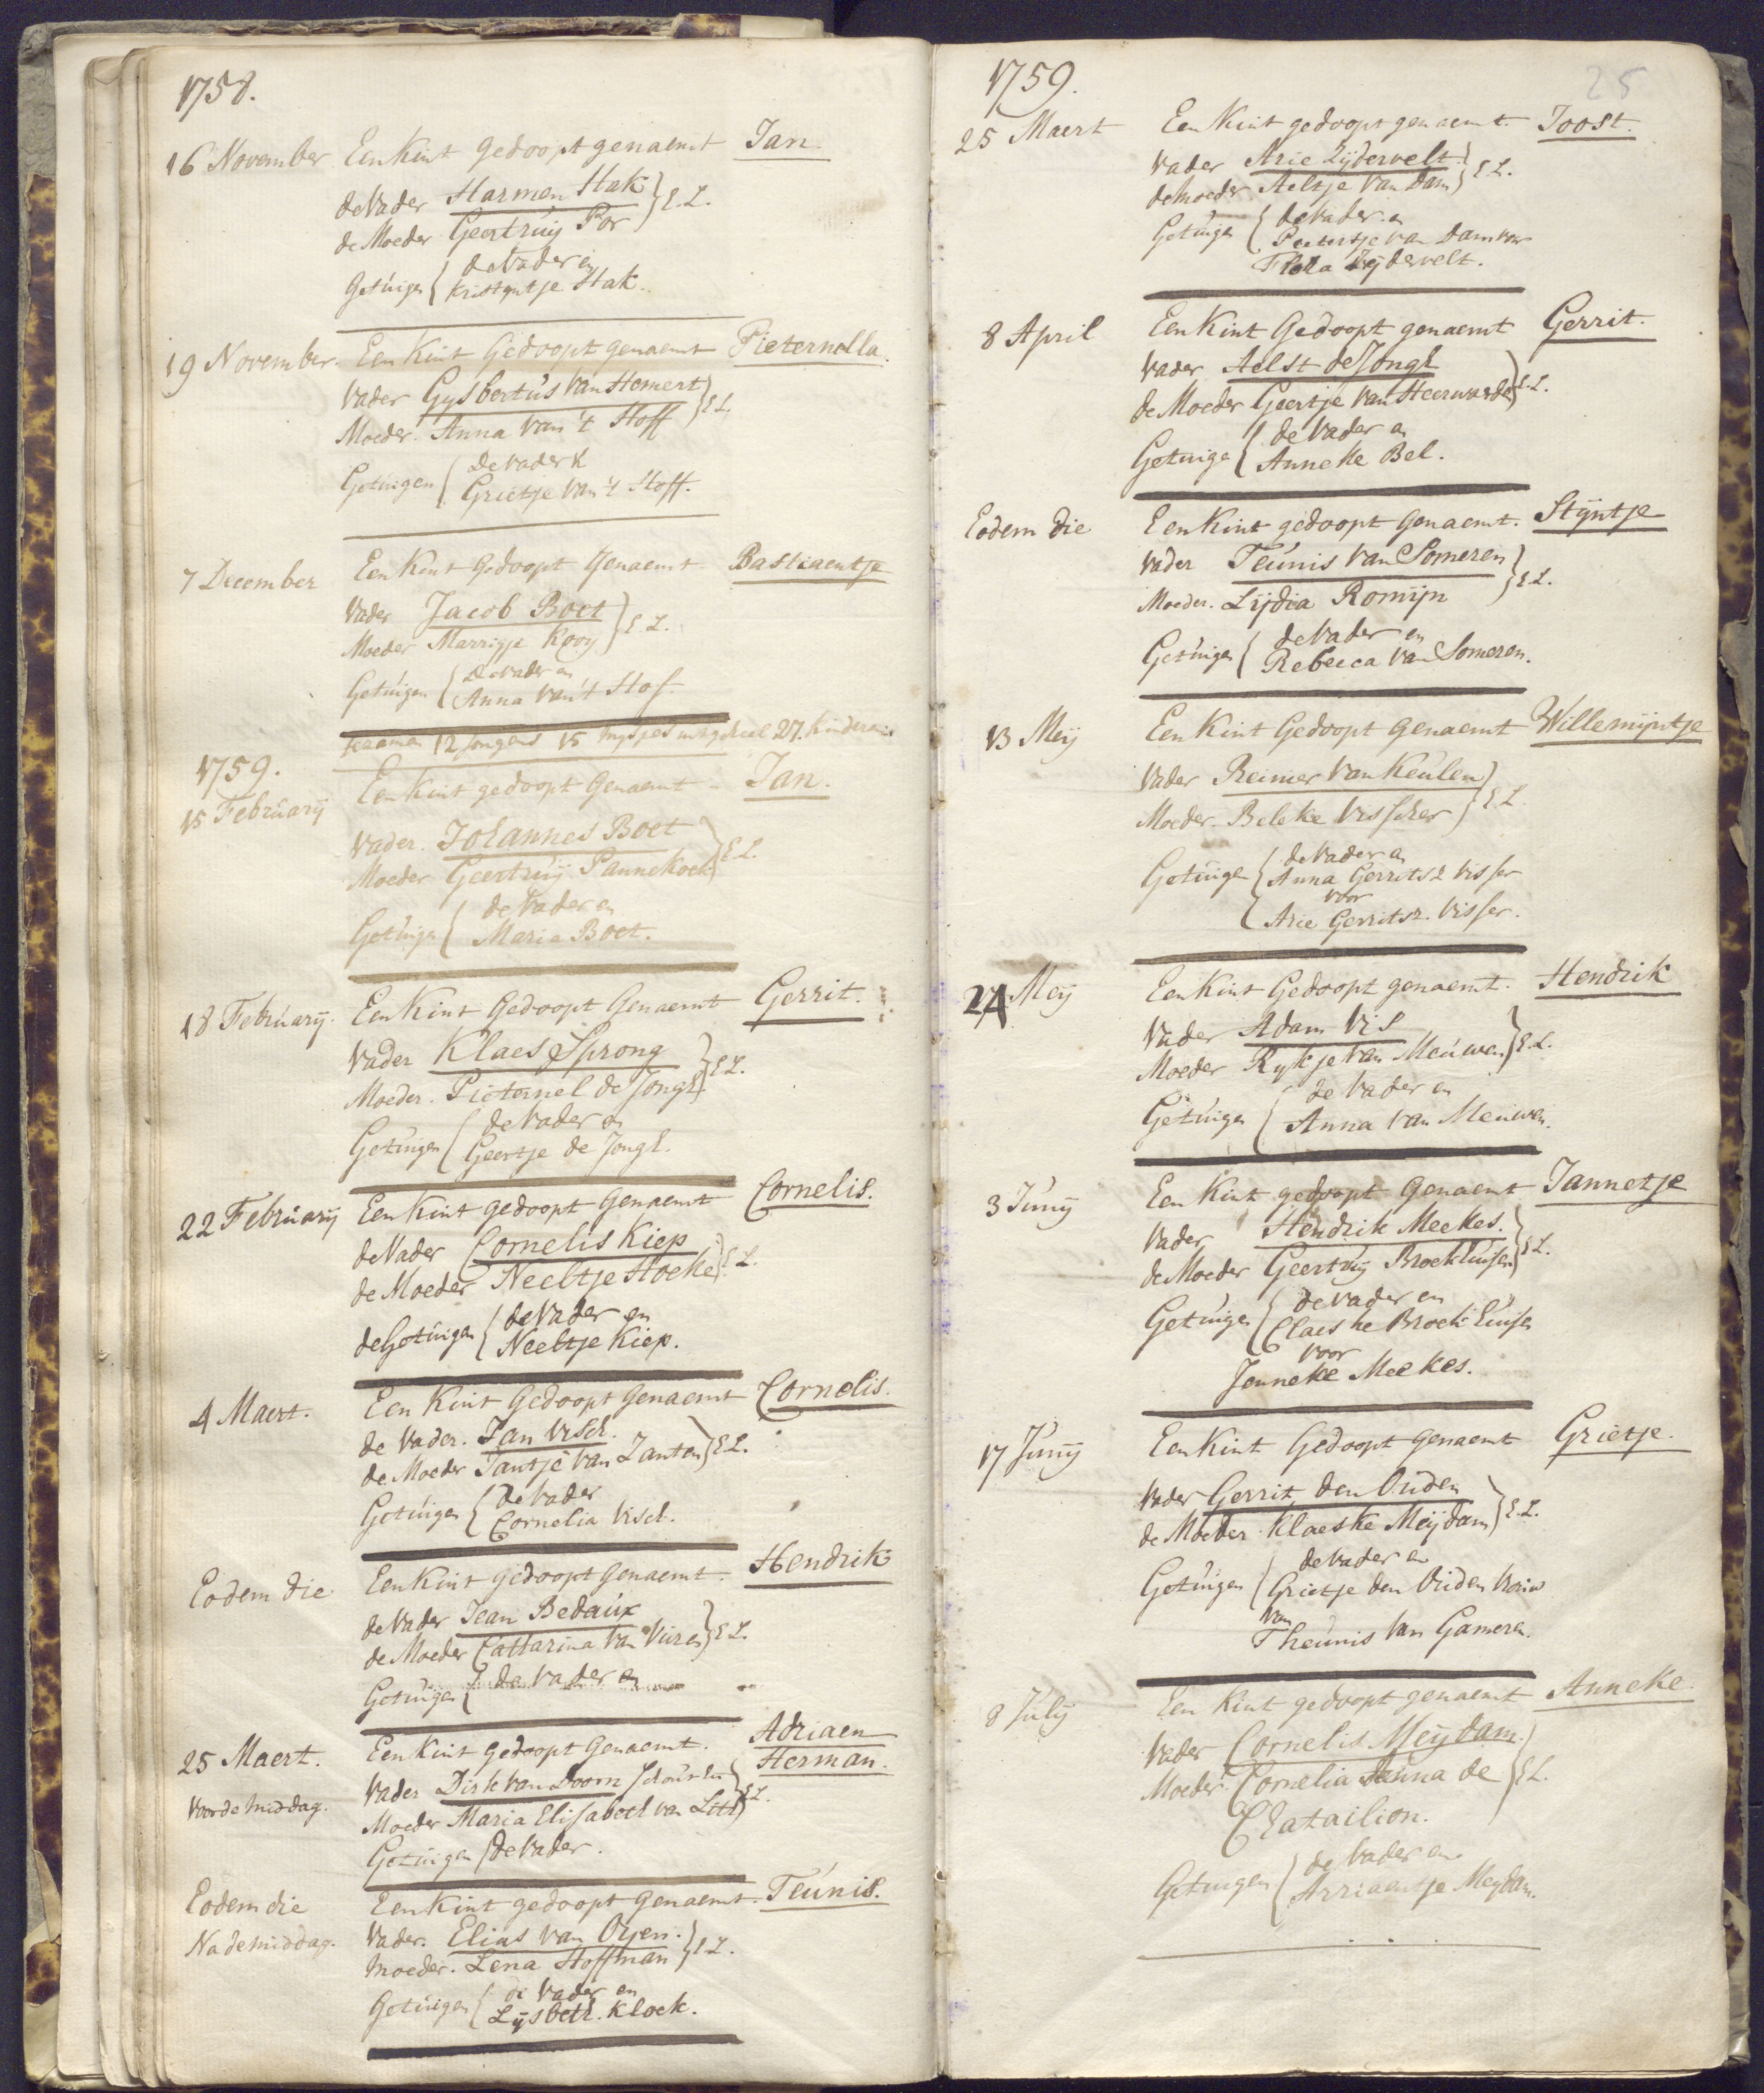 1758.
16 November Een Kint gedoopt genaemt Jan.
de Vader Harmen Hak } E. L.
de Moeder Geertruij Por
Getúigen { de Vader en
Kristyntje Hak.
19 November. Een Kint Gedoopt genaemt Pieternella.
Vader Gysbertús Van Hemert } E L.
Moeder. Anna Van 't Hoff
Getúigen { De Vader &
Grietje Van 't Hoff.
7 December Een Kint Gedoopt Genaemt Bastiaentje
Vader Jacob Boet } E L.
Moeder Marrigje Kooy
Getúigen { De Vader en
Anna Van 't Hof.
12 Jongens 15 27. Kinderen
1759.
15 Februarij Een Kint gedoopt Genaemt - Jan.
Vader. Johannes Boet } E L.
Moeder Geertruij Pannekoek
Getúigen { de Vader en
Maria Boet.
18 Februarij. Een Kint Gedoopt Genaemt Gerrit.
Vader Klaes Sprong } E L.
Moeder. Pieternel de Jongh
Getúigen { de Vader en
Geertje de Jongh.
22 Februarij Een Kint gedoopt Genaemt Cornelis.
de Vader Cornelis Kiep } E L.
de Moeder Neeltje Hoeke
de Getúigen { de Vader en
Neeltje Kiep.
4 Maert. Een Kint Gedoopt Genaemt Cornelis.
de Vader. Jan Visch. } E L.
de Moeder Jantje Van Zanten
Getúigen { de Vader
Cornelia Visch.
Eodem die Een Kint gedoopt Genaemt. Hendrik
de Vader Jean Bedaúx } E L.
de Moeder Catharina Van Vúren
Getúigen { de Vader en
25 Maert. Een Kint Gedoopt Genaemt. Adriaen
Voor de middag. Herman.
Vader Dirk van Doorn } E L.
Moeder Maria Elisabeth van Lith
Getúigen { de Vader.
Eodem die Een Kint gedoopt Genaemt. Teúnis.
Na de middag. Vader. Elias Van Oyen. } E L.
Moeder. Lena Hoffman
Getúigen { de Vader en
Lijsbeth. Kloek.
1759. 25
25 Maert Een Kint gedoopt genaemt. Joost.
Vader Arie Zijdervelt } E L.
de Moeder Aeltje Van Dam
Getúigen { de Vader en
Pietertje van Dam voor
Flora Zijdervelt.
8 April Een Kint Gedoopt genaemt Gerrit.
Vader Aelst de Jongh } E. L.
de Moeder Geertje Van Heerwarde
Getuige { de Vader en
Anneke Bel.
Eodem Die Een Kint gedoopt Genaemt. Stijntje
Vader Teúnis Van Someren } E L.
Moeder. Lijdia Romijn
Getúigen { de Vader en
Rebecca Van Someren.
13 Meij Een Kint Gedoopt Genaemt Willemijntje
Vader Reinier Van Keúlen } E L
Moeder. Beleke Visscher
Getuigen { de Vader en
Anna Gerritsz Visser
voor
Arie Gerritsz. Visser.
24 Meij Een Kint Gedoopt genaemt. Hendrik
Vader Adam Vis } E L.
Moeder Rykje Van Meúwen
Getúigen { de Vader en
Anna Van Meúwen.
3 Junij Een Kint gedoopt Genaemt Jannetje
Vader Hendrik Meekes. } E L.
de Moeder Geertruij Broekhúisen
Getúigen { de Vader en
Claeske Broekhúisen
voor
Jenneke Meekes.
17 Junij Een Kint Gedoopt genaemt Grietje.
Vader Gerrit den Oúden } E. L.
de Moeder Klaeske Meijdam
Getúigen { de Vader en
Grietje den Oúden Vrouw
Van
Theúnis Van Gameren.
8 Julij Een Kint gedoopt genaemt Anneke
Vader Cornelis Meijdam. } E L.
Moeder. Cornelia Janna de
Chatailion.
Getuigen { de Vader en
Arriaentje Meydam.